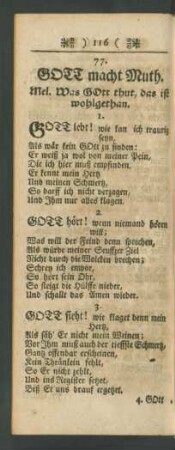 ( 116 )
77.
GOTT macht Muth.
Mel. Was GOtt thut, das ist
wohlgethan.
1.
GOTT lebt! wie kan ich traurig
seyn,
Als wär kein GOtt zu finden:
Er weiß ja wol von meiner Pein,
Die ich hier muß empfinden.
Er kennt mein Hertz
Und meinen Schmertz,
So darf ich nicht verzagen,
Und Ihm nur alles klagen.
2.
GOTT hört! wenn niemand hören
will;
Was will der Feind denn sprechen,
Als würde meiner Seuffzer Ziel
Nicht durch die Wolcken brechen;
Schrey ich empor,
So hört sein Ohr.
So steigt die Hülffe nieder,
und schallt das Amen wieder.
3.
GOTT sieht! wie klaget denn mein
Hertz,
Als säh' Er nicht mein Weinen;
Vor Jhm muß auch der tieffste Schmertz,
Gantz offenbar erscheinen,
Kein Thränlein fehlt,
So Er nicht zehlt,
Und ins Register setzet,
Biß Er uns drauf ergetzet.
4. GOtt